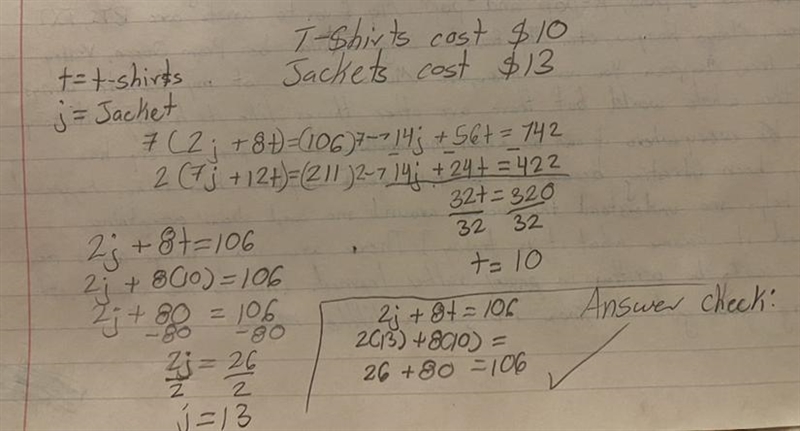 T-Shirts cost $10
Jackets cost $13
t=t-shirts
j=Jacket
7(2j+8t)=(106)7→14j+56t=742
2(7j+12t)=(211)2→14j+24t=422
32t=320
32 32
t=10
2j+8t=106
2j+8(10)=106
2j+80=106
-80 -80
2j=26
2 2
j=13
Answer check:
2j+8t=106
2(13)+8(10)=
26+80=106 ✓